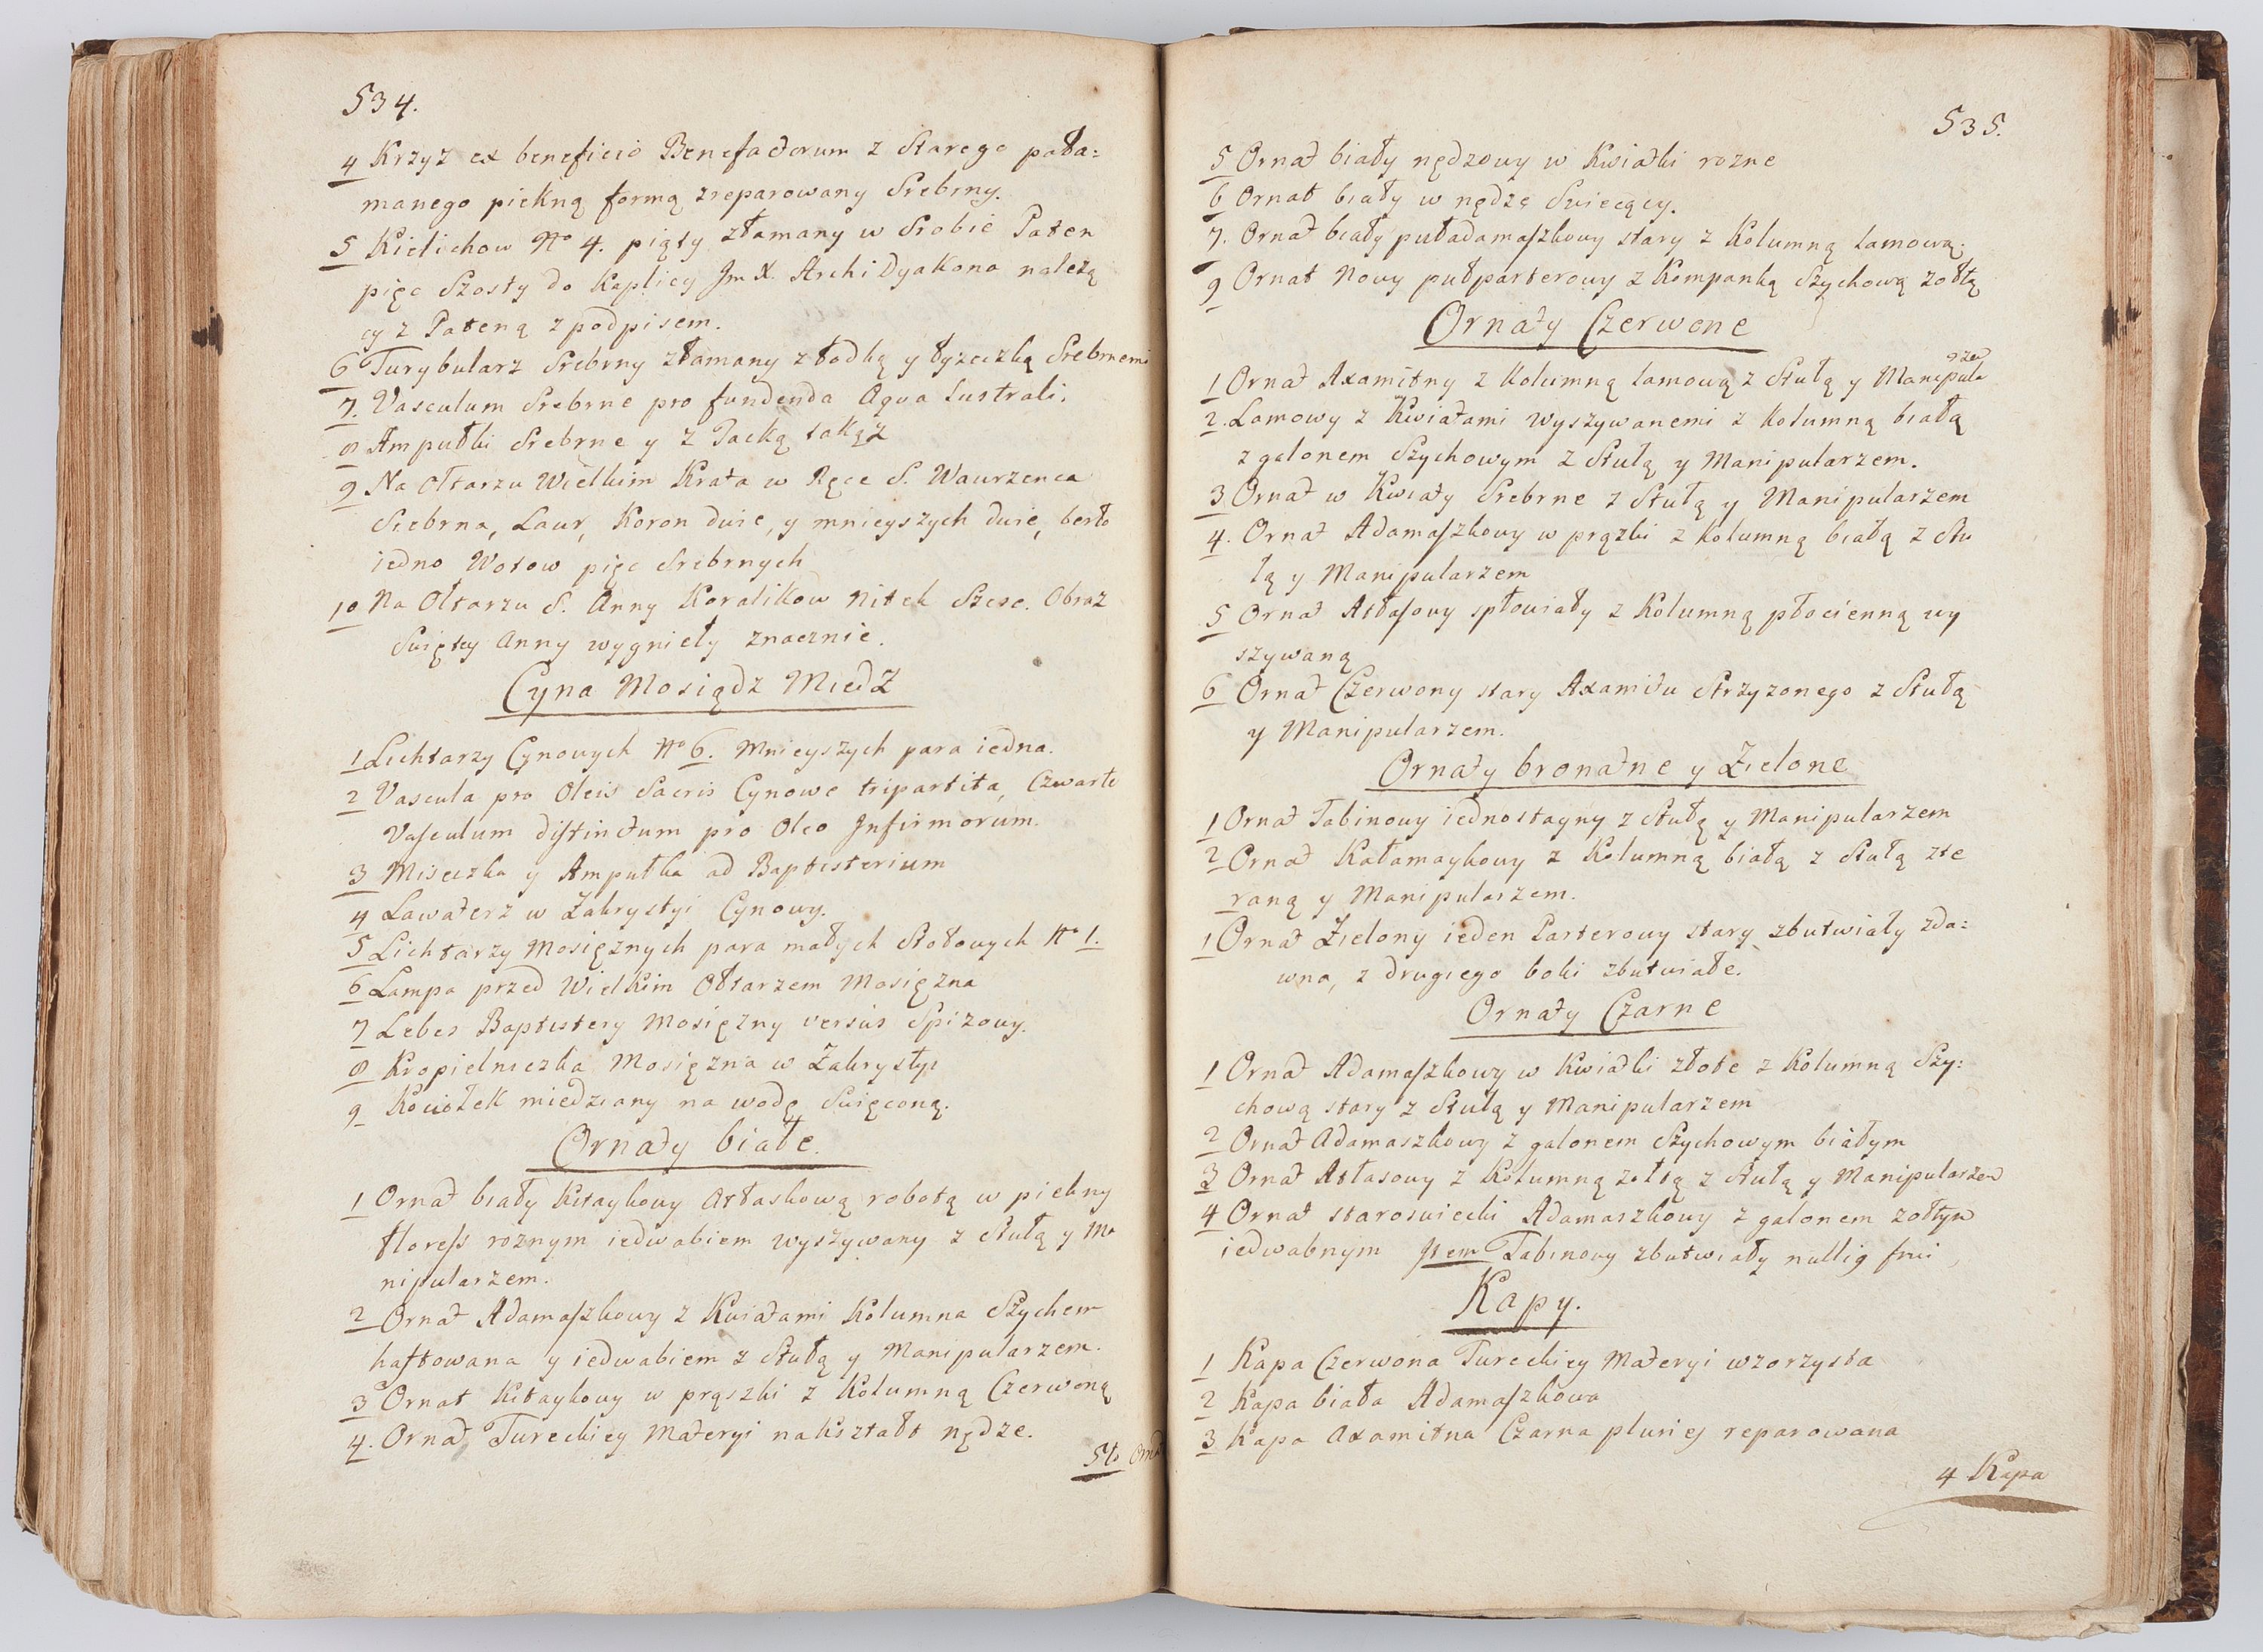 534.
4 Krzyz ex beneficio Benefactorum z Starego poła=
manego piekną formą zreparowany Srebrny.
5 Kielichow No 4. piąty złamany w Srobie Paten
pięc Szosty do Kaplicy Jm X. Archidyakona nalezą
cy z Pateną z podpisem.
6 Turybularz Srebrny złamany z łodką y łyzeczką Srebrnemi
7. Vasculum Srebrne pro fundenda Aqva Lustrali.
8 Ampułki Srebrne y z Tacką takąz
9 Na Ołtarzu Wielkim Krata w Ręce S. Wawrzenca
Srebrna, Laur, Koron dwie, y mnieyszych dwie, berło
iedno Wotow pięc Srebrnych
10 Na Ołtarzu S. Anny Koralikow Nitek Szesc. Obraz
Swiętey Anny wygnieły znacznie.
Cyna Mosiądz Miedz
1 Lichtarzy Cynowych No 6. Mnieyszych para iedna.
2 Vascula pro Oleis Sacris Cynowe tripartita, Czwarte
Vasculum distinctum pro Oleo Infirmorum.
3 Miseczka y Ampułka ad Baptisterium
4 Lawaterz w Zakrystyi Cynowy.
5 Lichtarzy Mosięznych para małych Stołowych No 1.
6 Lampa przed Wielkim Ołtarzem Mosięzna
7 Lebes Baptistery Mosięzny versus Spizowy.
8 Kropielniczka Mosięzna w Zakrystyi
9 Kociołek miedziany na wodę Swięconą.
Ornaty białe.
1 Ornat biały Kitaykowy Atłaskową robotą w piekny
floress roznym iedwabiem wyszywany z Stułą y Ma
nipularzem.
2 Ornat Adamaszkowy z Kwiatami Kolumna Szychem
haftowana y iedwabiem z Stułą y Manipularzem.
3 Ornat Kitaykowy w prąszki z Kolumną Czerwoną
4. Ornat Tureckiey Materyi nakształt nędze.
5to Ornat
535.
5 Ornat biały nędzowy w Kwiatki rozne
6 Ornat biały w nędzę Swiecący.
7. Ornat biały puładamaszkowy stary z Kolumną Lamową.
9 Ornat Nowy pułparterowy z Kompanką Szychową zołtą
Ornaty Czerwone
1 Ornat Axamitny z Kolumną Lamową z Stułą y Manipula
rzem
2. Lamowy z Kwiatami wyszywanemi z Kolumną białą
z galonem Szychowym z Stułą y Manipularzem.
3 Ornat w Kwiaty Srebrne z Stułą y Manipularzem
4. Ornat Adamaszkowy w prązki z Kolumną białą z Stu
łą y Manipularzem
5 Ornat Atłasowy spłowiały z Kolumną płocienną wy
szywaną
6 Ornat Czerwony stary Axamitu Strzyzonego z Stułą
y Manipularzem.
Ornaty bronatne y Zielone
1 Ornat Tabinowy iednostayny z Stułą y Manipularzem
2 Ornat Kałamaykowy z Kolumną białą z Stułą zte
raną y Manipularzem.
1 Ornat Zielony ieden Parterowy stary zbutwiały zda=
wna, z drugiego boki zbutwiałe.
Ornaty Czarne
1 Ornat Adamaszkowy w Kwiatki złote z Kolumną Szy:
chową stary z Stułą y Manipularzem
2 Ornat Adamaszkowy z galonem Szychowym białym
3 Ornat Atłasowy z Kolumną zołtą z Stułą y Manipularzem
4 Ornat staroswiecki Adamaszkowy z galonem zołtym
iedwabnym Item Tabinowy zbutwiały
Kapy.
1 Kapa Czerwona Tureckiey Materyi wzorzysta
2 Kapa biała Adamaszkowa
3 Kapa Axamitna Czarna pluries reparowana
4 Kapa